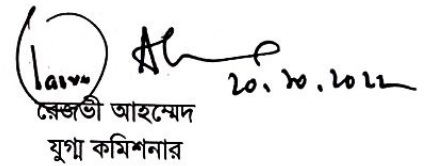 ২০.১০.২০২২
রেজভী আহম্মেদ
যুগ্ম কমিশনার